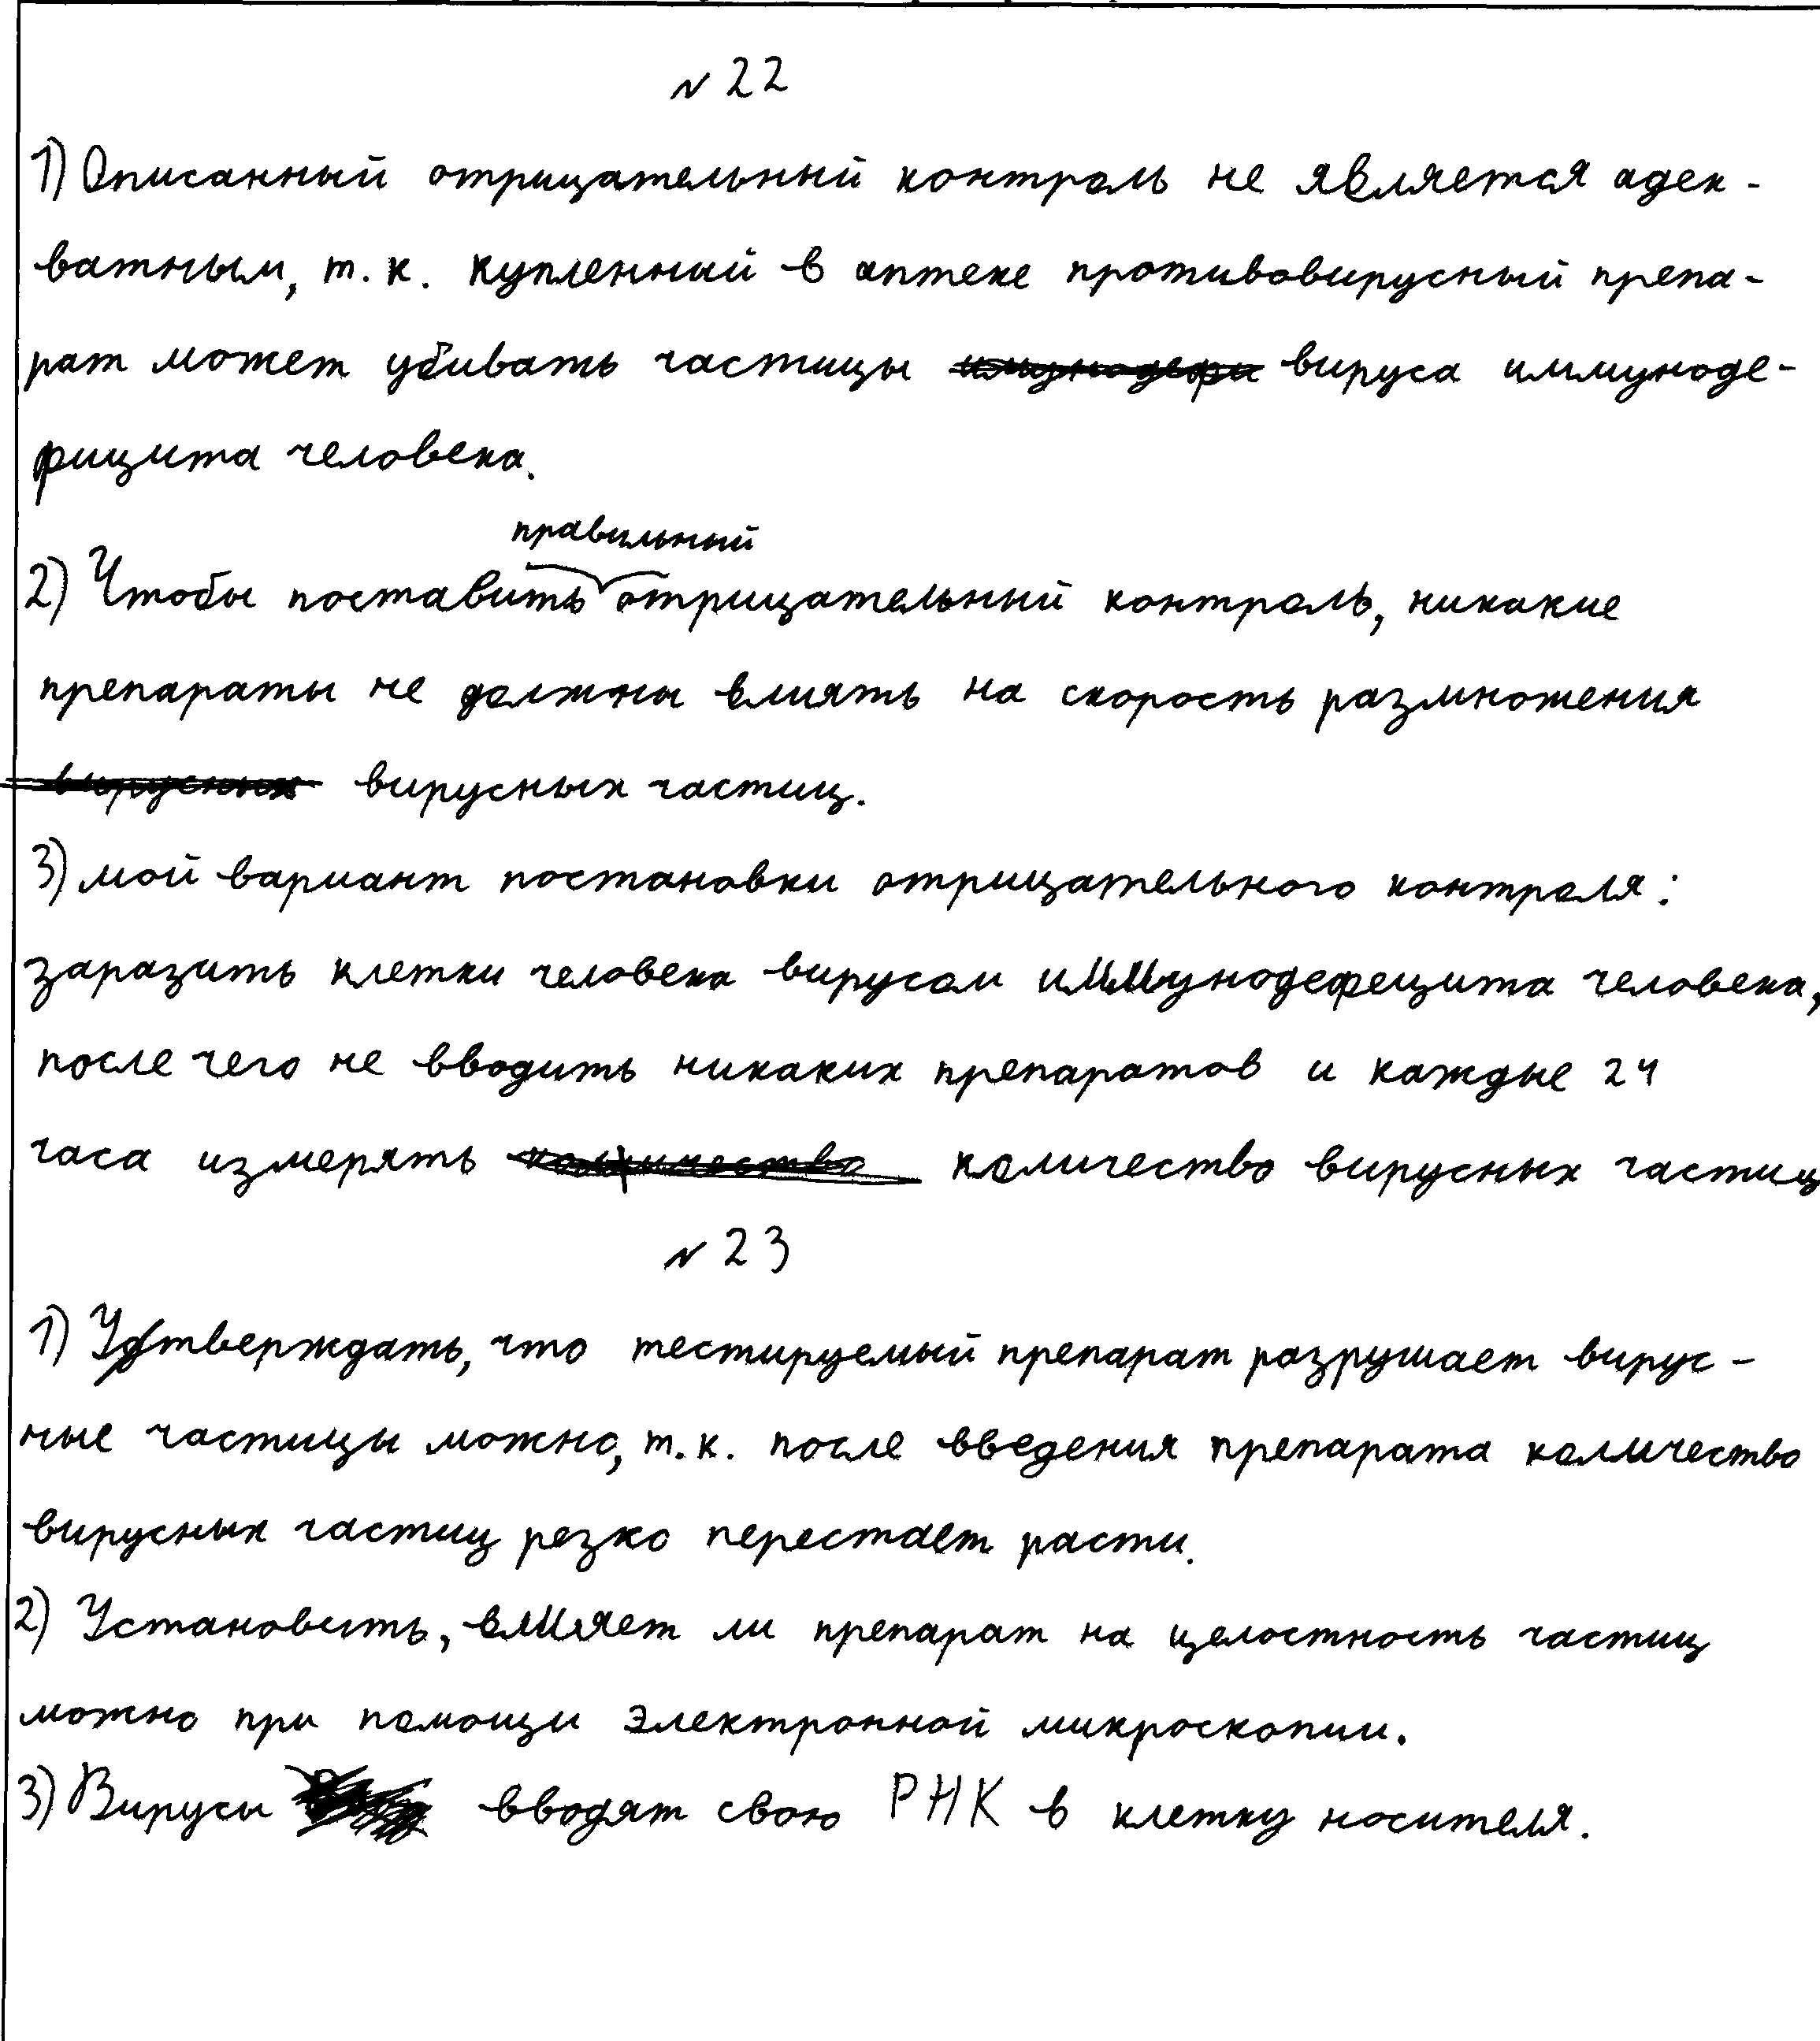 № 22
1) Описанный отрицательный контроль не является адек-
ватным, т. к. купленный в аптеке противовирусный препа-
рат может убивать частицы вируса иммуноде-
фицита человека.
правильный
2) Чтобы поставить отрицательный контроль, никакие
препараты не должны влиять на скорость размножения
вирусных частиц.
3) мой вариант постановки отрицательного контроля:
заразить клетки человека вирусом иммунодефецита человека,
после чего не вводить никаких препаратов и каждые 24
часа измерять количество вирусных частиц
№ 23
1) Утверждать, что тестируемый препарат разрушает вирус-
ные частицы можно, т. к. после введения препарата количество
вирусных частиц резко перестает расти.
2) Установить, влияет ли препарат на целостность частиц
можно при помощи электронной микроскопии.
3) Вирусы вводят свою РНК в клетку носителя.